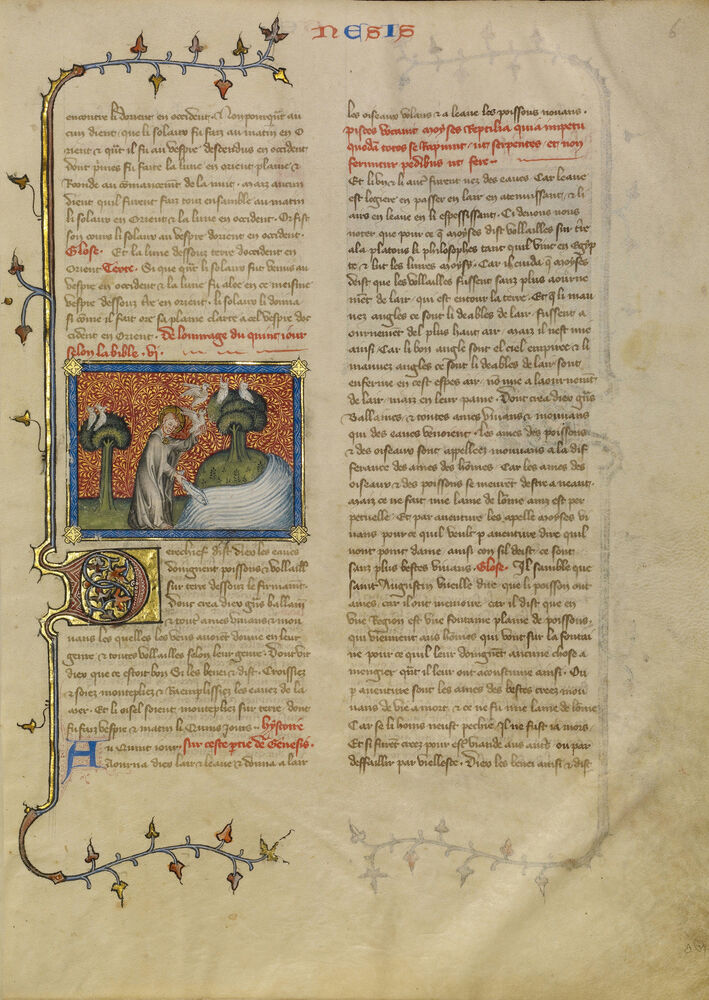 NESIS
6
encontre li dorient en occident. Nonpourqut au
cun dient que li solaux fu faiz au matin en O
rient & qnt il fu au vespre descendus en occident
dont primes fu faite la lune en orient plaine &
Roonde au comancemt de la nuit. maiz aucun
dient quil furent faiz touz ensamble au matin
li solaux en Orient & la lune en occident. Or fist
son cours li solaux au vespre dorient en occident.
Glose. Et la lune dessouz terre doccident en
Orient Texte. Si que qnt li solaux fut venus au
vespre en occident & la lune fu alee en ce meisme
vespre dessouz tre en orient. li solaux li donna
si come il fait ore sa plaine clarte a cel vespre doc
cident en Orient. De louvrage du quint iour
selon la bible. vi.
erechief dist dieu les eaues
doingnent poissons & vollaill
sur terre dessouz le firmamt.
Dont crea dieu gns ballain
& tout ames vivans & mou
vans les quelles les eaues avoiet donne en leur
genre & toutes vollailles selon leur genre. Dont vit
dieu que ce estoit bon Si les benei & dist. Croissiez
& soiez monteplies & Raemplissiez les eauez de la
mer. Et li oisel soient monteplies sur terre. dont
fu faiz vespre & matin li Quins Jours. hystoire
Au Quint iour. sur ceste ptie de Genesis.
Aourna dieu lair & leaue & donna a lair
les oiseaux volans & a leaue les poissons noüans.
Pisces vocant moyses Reptilia quia impetu
quodam totos se Rapiunt. ut serpentes et non
feruntur pedibus ut fere
Et li un & li autre furent nez des eaues. Car leaue
est legiere en passer en lair en atenuissant. & li
airs en leaue en li espessissant. Ci devons nous
noter que pour ce q moyses dist vollailles sur tre
ala platons li philosophes tant quil vint en Egyp
te & lut les livres moysi. Car il cuida q moyses
deist que les vollailles fussent sanz plus aourne
met de lair. qui est entour la terre. Et q li mau
vez angles ce sont li deables de lair fussent a
ournemet del plus haut air. maiz il nest mie
ainsi. Car li bon angle sont el ciel empire & li
mauvez angles ce sont li deables de lair sont
enferme en cest espes air. no mie a laournemt
de lair. maiz en leur paine. Dont crea dieu gns
Ballaines. & toutes ames vivans & mouvans
qui des eaues venoient. les ames des poissons
& des oiseaux sont appellees mouvans a la dif
ferance des ames des homes. Car les ames des
oiseaux & des poissons se muevet destre a neant.
maiz ce ne fait mie lame de lome ainz est per
petuelle. Et par aventure les apelle moyses vi
vans pour ce quil veult p aventure dire quil
nont point dame. ainsi con sil deist. ce sont
sanz plus bestes vivans. Glose. Il samble que
saint Augustin vueille dire. que li poisson ont
ames. car il ont memoire. car il dist que en
une Region est une fontaine plaine de poissons.
qui viennent aus homes qui vont sur la fontai
ne pour ce quil leur doingnet aucune chose a
mengier qnt il leur ont acoustume ainsi. Ou
p aventure sont les ames des bestes creez mou
vans de vie a mort. & ce ne fu mie lame de lome
Car se li homs neust pechie. Il ne fust ia mors.
Et si furet creez pour est viande aus autres ou par
deffaillir par viellesce. Dieu les benei ainsi & dist